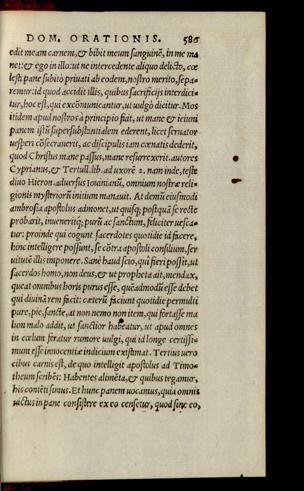 DOM. ORATIONIS. 586
edit meam carnem, & bibit meum sanguinē, in me ma
net: & ego in illo: ut ne intercedente aliquo delicto, cœ
lesti pane subitò priuati ab eodem, nostro merito, sepa-
remur: id quod accidit illis, quibus sacrificijs interdici-
tur, hoc est, qui excōmunicantur, ut uulgò dicitur. Mos
itidem apud nostros à principio fiat, ut mane & ieiuni
panem istū supersubstantialem ederent, licet seruator
uesperi cōsecrauerit, ac discipulis iam cœnatis dederit,
quod Christus mane passus, mane resurrexerit. autores
Cyprianus, & Tertull. ad uxorē 2. lib. nam inde, teste
diuo Hieron. aduersus Iouinianū, omnium nostræ reli-
gionis mysteriorū initium manauit. At demū eiusmodi
ambrosia apostolus admonet, ut quisq; postquā se recte
probarit, inueneritq; purū ac sanctum, feliciter uesca-
tur: proinde qui cogunt sacerdotes quotidie id facere,
hinc intelligere possunt, se cōtra apostoli consilium, ser
uitutē illis imponere. Sanè haud scio, qui fieri possit, ut
sacerdos homo, non deus, & ut propheta ait, mendax,
queat omnibus horis purus esse, quēadmodū esse debet
qui diuinā rem facit: cæterū faciunt quotidie permulti
pure, pie, sancte, at non nemo non item, qui fortasse ma
lum malo addit, ut sanctior habeatur, ut apud omnes
in cœlum feratur rumore uulgi, qui id longe certissi-
mum esse innocentiæ indicium existimat. Tertius uero
cibus carnis est, de quo intelligit apostolus ad Timo-
theum scribēs: Habentes alimēta, & quibus tegamur,
his contēti simus. Et hunc panem uocamus, quia omnis
uictus in pane consistere ex eo censetur, quod sine eo,